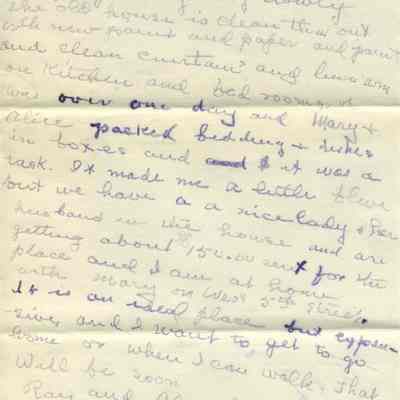 the old house is clean thru out
with new paint and paper and paint
and clean curtains and linoleum
on Kitchen and bed rooms.
was over one day and Mary &
Alice packed bedding & dishes
in boxes and it was a
task. It made me a little blue
but we have a a nice lady & her
husband in the house and are
getting about $15.00 rent for the
place and I am at home
with Mary on West 5th Street.
It is an ideal place but expen-
sive, and I want to get to go
home or when I can walk & that
will be soon
Ray and